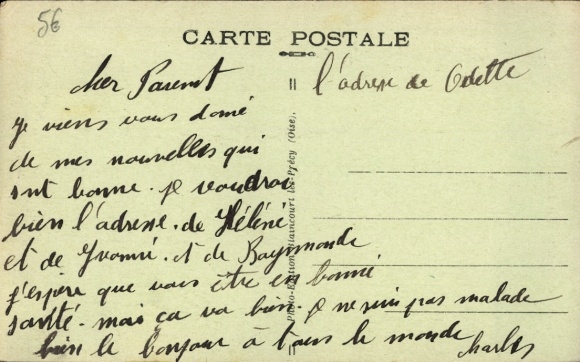 5€
CARTE POSTALE
cher Parent
l'adresse de Odette
Je viens vous doné
de mes nouvelles qui
sont bonne. je voudrai
bien l'adresse. de Héléné
et de Yvonné. et de Raymonde
j'espère que vous être en bonné
santé. mai ça va bien. je ne suis pas malade
bien le bonjour à tous le monde
Charles